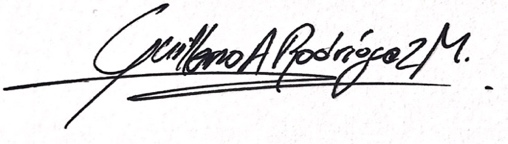 Guillermo A Rodríguez M.